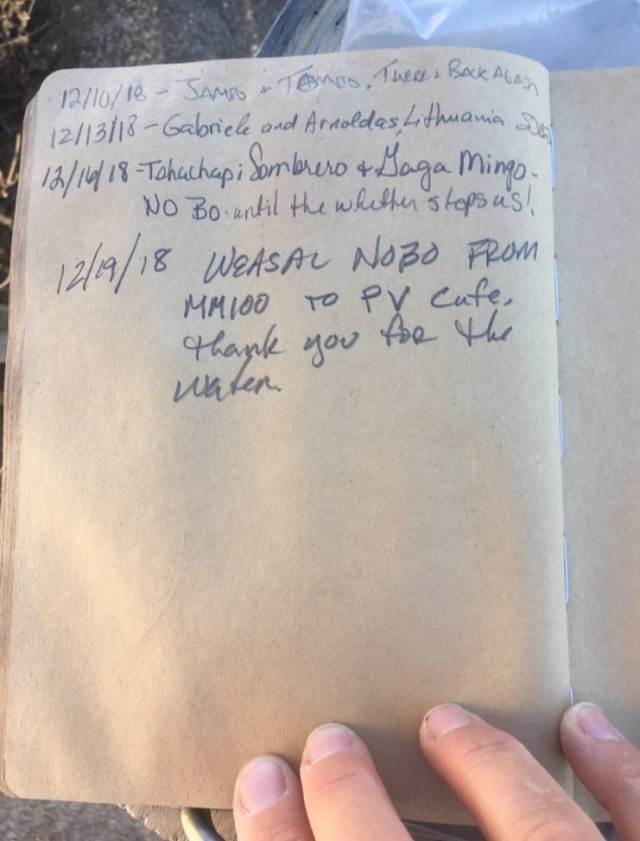 12/10/18 - JAMBO & TEMBO. THERE & BACK AGAIN
12/13/18 - Gabriele and Arnoldas, Lithuania SOBO
12/16/18 - Tahachapi Sombrero & Gaga Mingo -
NO BO. until the whether stops us!
12/19/18 WEASAL NOBO FROM
MM100 TO PV Cafe.
thank you for the
water.